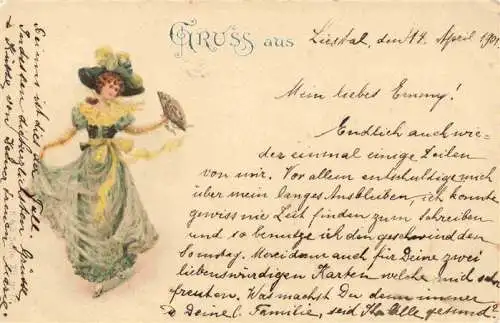 GRUSS aus
Liestal, den 14. April 1901
Mein liebes Emmy!
Endlich auch wie-
der einmal einige Zeilen
von mir. Vor allem entschuldige mich
über mein langes Ausbleiben, ich konnte
gewiss nie Zeit finden zum Schreiben
und so benutze ich den geschwind den
Sonntag. Merci dann auch für Deine zwei
liebenswürdigen Karten welche mich sehr
freuten. Was machst Du denn immer
& Deine l. Familie, seid Ihr Alle gesund?
Bei uns ist dies der Fall.
Indessen die herzlichsten Grüsse
& Küsse, von Deiner